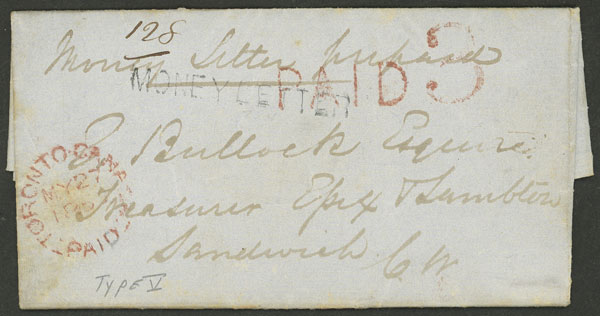 128
Money Letter prepaid
PAID 3
MONEY LETTER
Bullock Esquire
Treasurer Essex & Lambton
Sandwich
CW
TORONTO CANADA
MY 27
PAID
TYPE V